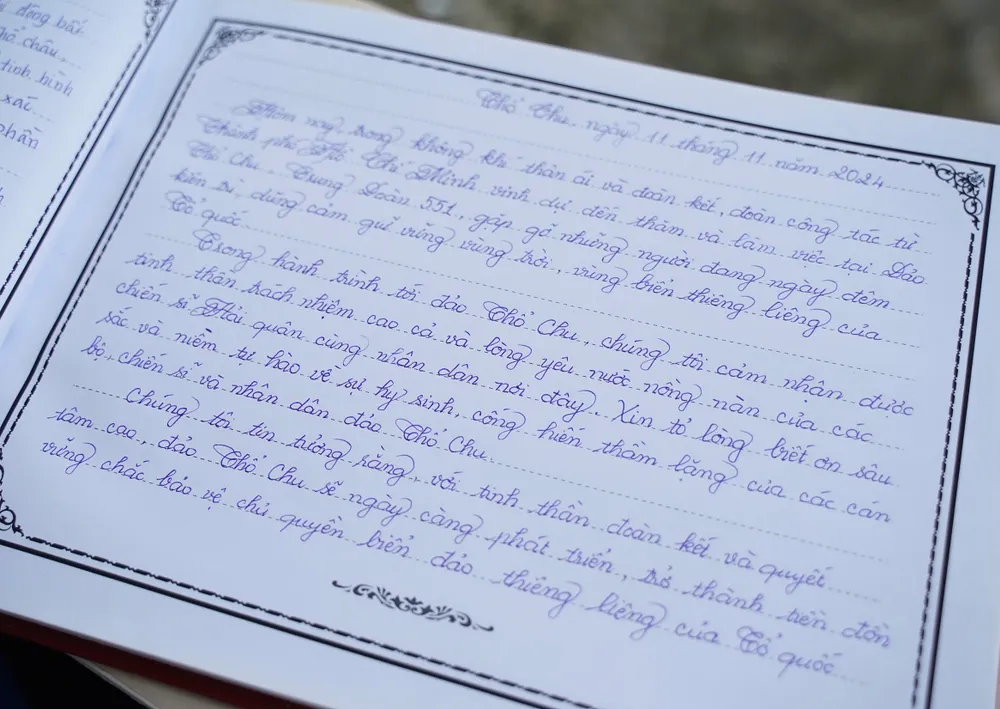 động bất
Thổ Châu,
tình hình
xát
phần
Thổ Chu, ngày 11 tháng 11 năm 2024
Hôm nay, trong không khí thân ái và đoàn kết, đoàn công tác từ
Thành phố Hồ Chí Minh vinh dự đến thăm và làm việc tại Đảo
Thổ Chu, Trung Đoàn 551, gặp gỡ những người đang ngày đêm
kiên trì, dũng cảm giữ vững vùng trời, vùng biển thiêng liêng của
Tổ quốc.
Trong hành trình tới đảo Thổ Chu, chúng tôi cảm nhận được
tinh thần trách nhiệm cao cả và lòng yêu nước nồng nàn của các
chiến sĩ Hải quân cùng nhân dân nơi đây. Xin tỏ lòng biết ơn sâu
sắc và niềm tự hào về sự hy sinh, cống hiến thầm lặng của các cán
bộ, chiến sĩ và nhân dân đảo Thổ Chu.
Chúng tôi tin tưởng rằng, với tinh thần đoàn kết và quyết
tâm cao, đảo Thổ Chu sẽ ngày càng phát triển, trở thành tiền đồn
vững chắc bảo vệ chủ quyền biển đảo thiêng liêng của Tổ quốc